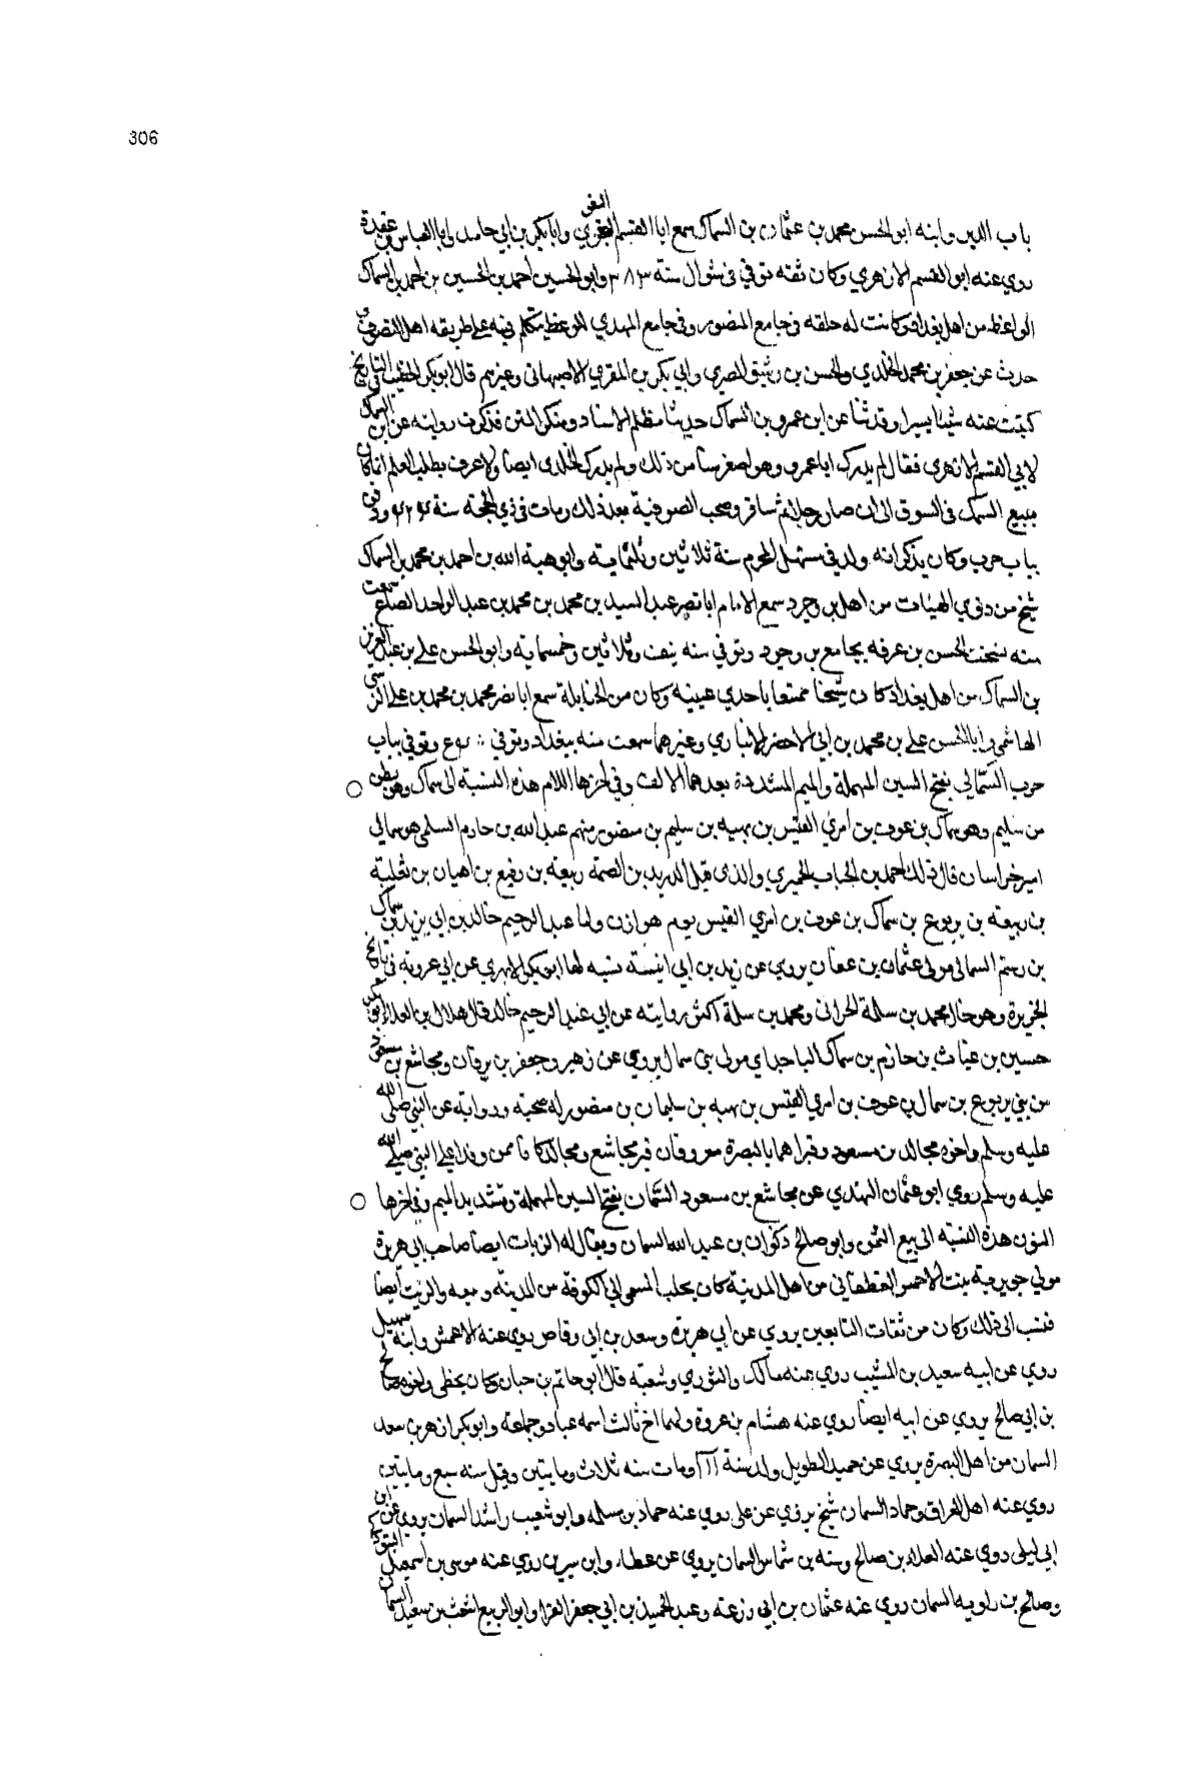 306
باب الدير وابنه ابو الحسن محمد بن عثمان بن السماك سمع ابا القسم البغوي وابا بكر بن ابي حامد وابا العباس بن عقدة
روي عنه ابو القسم الازهري وكان ثقه توفي في شوال سنة ٣٨٣ وابو الحسين احمد بن الحسين بن احمد بن السماك
الواعظ من اهل بغداد وكانت له حلقه في جامع المنصور وفي جامع المهدي للوعظ يتكلم فيه علي طريقه اهل التصوف
حدث عن جعفر بن محمد الخلدي والحسن بن رشيق المصري وابي بكر بن المقري الاصبهاني وغيرهم قال ابو بكر الخطيب في التاريخ
كتبت عنه شيئا يسيرا وقد ثنا عن ابن عمرو بن السماك حديثا مظلم الاسناد ومنكر المتن فذكرت روايته عن ابن السماك
لابي القسم الازهري فقال لم يدرك ابا عمرو وهو اصغر سنا من ذلك ولم يدرك الخلدي ايضا ولا عرف بطلب العلم انما كان
يبيع السمك في السوق الي ان صار رجلا ثم سافر وصحب الصوفية بعد ذلك ومات في ذي الحجة سنة ٤٢٤ ودفن
بباب حرب وكان يذكر انه ولد في مستهل المحرم سنة ثلاثين وثلثماية وابو هبة الله بن احمد بن محمد بن السماك
شيخ من ذوي الهيئات من اهل بروجرد سمع الامام ابا نصر عبد السيد بن محمد بن محمد بن عبد الواحد الصباغ سمعت
منه نسخت الحسن بن عرفه بجامع بروجرد وتوفي سنه نيف وثلاثين وخمسماية وابو الحسن علي بن عبد العزيز
بن السماك من اهل بغداد كان شيخا ممتعا باحدي عينيه وكان من الحنابلة سمع ابا نصر محمد بن محمد بن علي الزينبي
الهاشمي وابا الحسن علي بن محمد بن ابي الاخضر الانباري وغيرهما سمعت منه ببغداد وتوفي وتوفي بباب
حرب السمالي بفتح السين المهملة والميم المشددة بعدهما الالف وفي اخرها اللام هذه النسبة الي سماك وهو بطن
من سليم وهو سماك بن عوف بن امري القيس بن بهيه بن سليم بن منصور منهم عبد الله بن خازم السلمي هو سمالي
امير خراسان قال ذلك احمد بن الحباب الحميري والذي قتل الدريد بن الصمة ربيعه بن رفيع بن اهبان بن ثعلبة
بن ربيعه بن يربوع بن سماك بن عوف بن امري القيس يوم هوازن واما عبد الرحيم خالد بن ابي يزيد بن سماك
بن رستم السمالي مولي عثمان بن عفان يروي عن زيد بن ابي انيسة نسبه لها ابو بكر الابهري عن ابي عروبة في تاريخ
الجزيرة وهو خال محمد بن سلمة الحراني ومحمد بن سلمة اكثر روايته عن ابي عبد الرحيم خالد قال هلال بن العلاء ابو بكر
حسين بن عياث بن حازم بن سماك الباجداي مولي بني سمال يروي عن زهير وجعفر بن برقان ومجاشع بن مسعود
من بني يربوع بن سمال بن عوف بن امري القيس بن بهيه بن سليمان بن منصور له صحبة ورواية عن النبي صلي الله
عليه وسلم واخوه مجالد بن مسعود وقبراهما بالبصرة معروفان قبر مجاشع ومجالد كانا ممن وفدا علي النبي صلي الله
عليه وسلم روي ابو عثمان الهندي عن مجاشع بن مسعود السمان بفتح السين المهملة وتشديد الميم وفي اخرها
النون هذه النسبه الي بيع السمن وابو صالح ذكوان بن عبد الله السمان ويقال له الزيات ايضا صاحب ابي هريرة
مولي جويرية بنت الاحمس الغطفاني من اهل المدينة كان يجلب السمن الي الكوفة من المدينه و بيعه والزيت ايضا
فنسب الي ذلك وكان من ثقات التابعين يروي عن ابي هريرة وسعد بن ابي وقاص روي عنه الاعمش وابنه سهيل
روي عن ابيه سعيد بن المسيب روي عنه مالك والثوري وشعبة قال ابو حاتم بن حبان وكان يخطي واخوه صالح
بن ابي صالح يروي عن ابيه ايضا روي عنه هشام بن عروة ولهما اخ ثالث اسمه عباد وجماعة وابو بكر ازهر بن سعد
السمان من اهل البصرة يروي عن حميد الطويل ولد سنة ١١١ ومات سنه ثلاث ومايتين وقيل سنه سبع ومايتين
روي عنه اهل العراق وحماد السمان شيخ يروي عن علي روي عنه حماد بن سلمه وابو شعيب راشد السمان يروي عن ابن
ابي ليلي روي عنه العلاء بن صالح وسنه بن شماس السمان يروي عن عطاء وابن سيرين روي عنه موسي بن اسمعيل
وصالح بن راويه السمان روي عنه عثمان بن ابي وزعته وعبد الحميد بن ابي جعفر الفراء وابو الربيع اشعث بن سعيد السمان